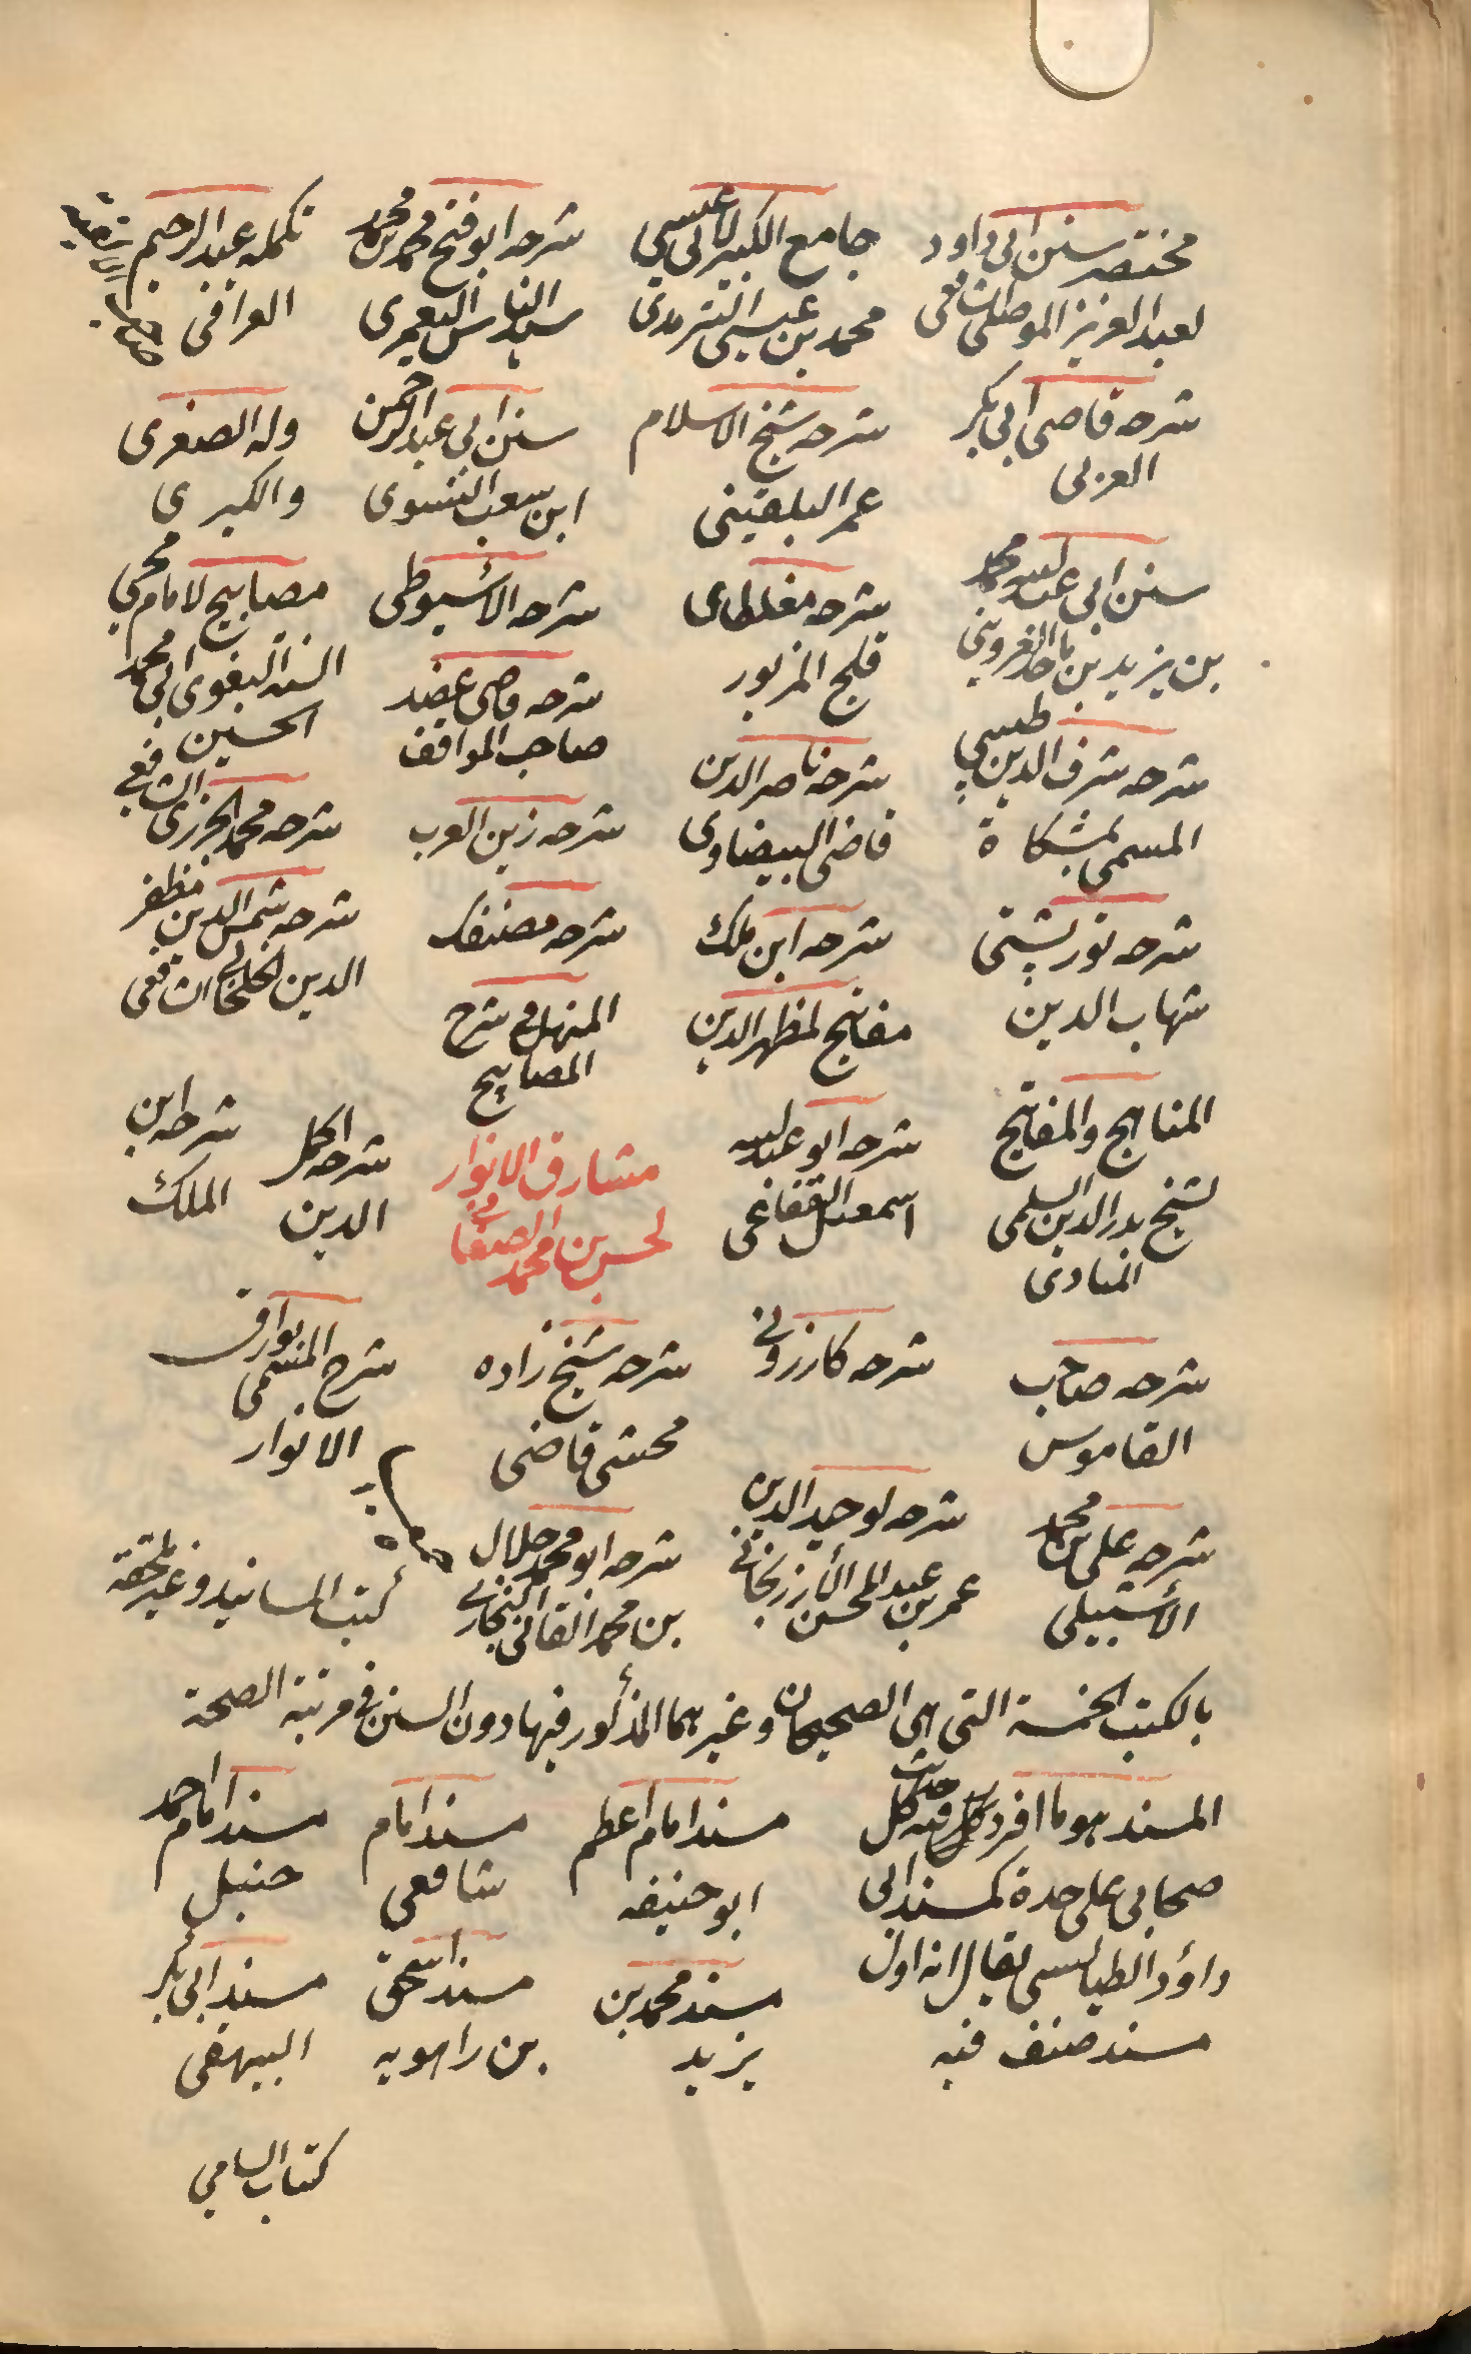 مختصر سنن ابى داود
لعبد العزيز الموصلى الشافعى
جامع الكبير لابى عيسى
محمد بن عيسى الترمذى
شرحه ابو فتح محمد بن محمد
سيد الناس اليعمرى
تكمله عبد الرحيم
العراقى
شرحه قاضى ابى بكر
العربى
شرحه شيخ الاسلام
عمر البلقينى
سنن ابى عبد الرحمن
ابن شعيب النسوى
وله الصغرى
والكبرى
سنن ابى عبد الله محمد
بن يزيد بن ماجه القزوينى
شرحه مغلطاى
قلج المزبور
شرحه الأسيوطى
مصابيح لامام محيي
السنة البغوى ابى محمد
الحسين
شرحه قاضى عضد
صاحب المواقف
شرحه شرف الدين طيبي
المسمى بمشكاة
شرحه ناصر الدين
قاضى البيضاوى
شرحه زين العرب
شرحه محمد الجزرى الشافعي
شرحه توربشتى
شهاب الدين
شرحه ابن ملك
شرحه مصنفك
شرحه شمس الدين مظفر
الدين الخلخالى الشافعى
مفاتيح لمظهر الدين
المنهل فى شرح
المصابيح
المناهج والمفاتيح
لشيخ بدر الدين السلمى
المناوى
شرحه ابو عبد الله
اسمعيل القفاعى
مشارق الانوار
لحسن بن محمد الصغانى
شرحه اكمل
الدين
شرحه ابن
الملك
شرحه صاحب
القاموس
شرحه كازرونى
شرحه شيخ زاده
محشى قاضى
شرح المسمى بوارق
الانوار
شرحه على بن محمد
الأشبيلى
شرحه لوحيد الدين
عمر بن عبد المحسن الأرزنجانى
شرحه ابو محمد جلال
بن محمد القائنى البخارى
كتب المسانيد وغير ملحقة
بالكتب الخمسة التى هى الصحيحان وغيرهما المذكور فيها دون السنن فى مرتبة الصحة
المسند هو ما افرد فيه حديث كل
صحابى على حدة كمسند ابى
داؤد الطيالسى يقال انه اول
مسند صنف فيه
مسند امام اعظم
ابو حنيفه
مسند امام
شافعى
مسند امام احمد
حنبل
مسند محمد بن
يزيد
مسند اسحق
بن راهويه
مسند ابى بكر
البيهقى
كتاب السامي